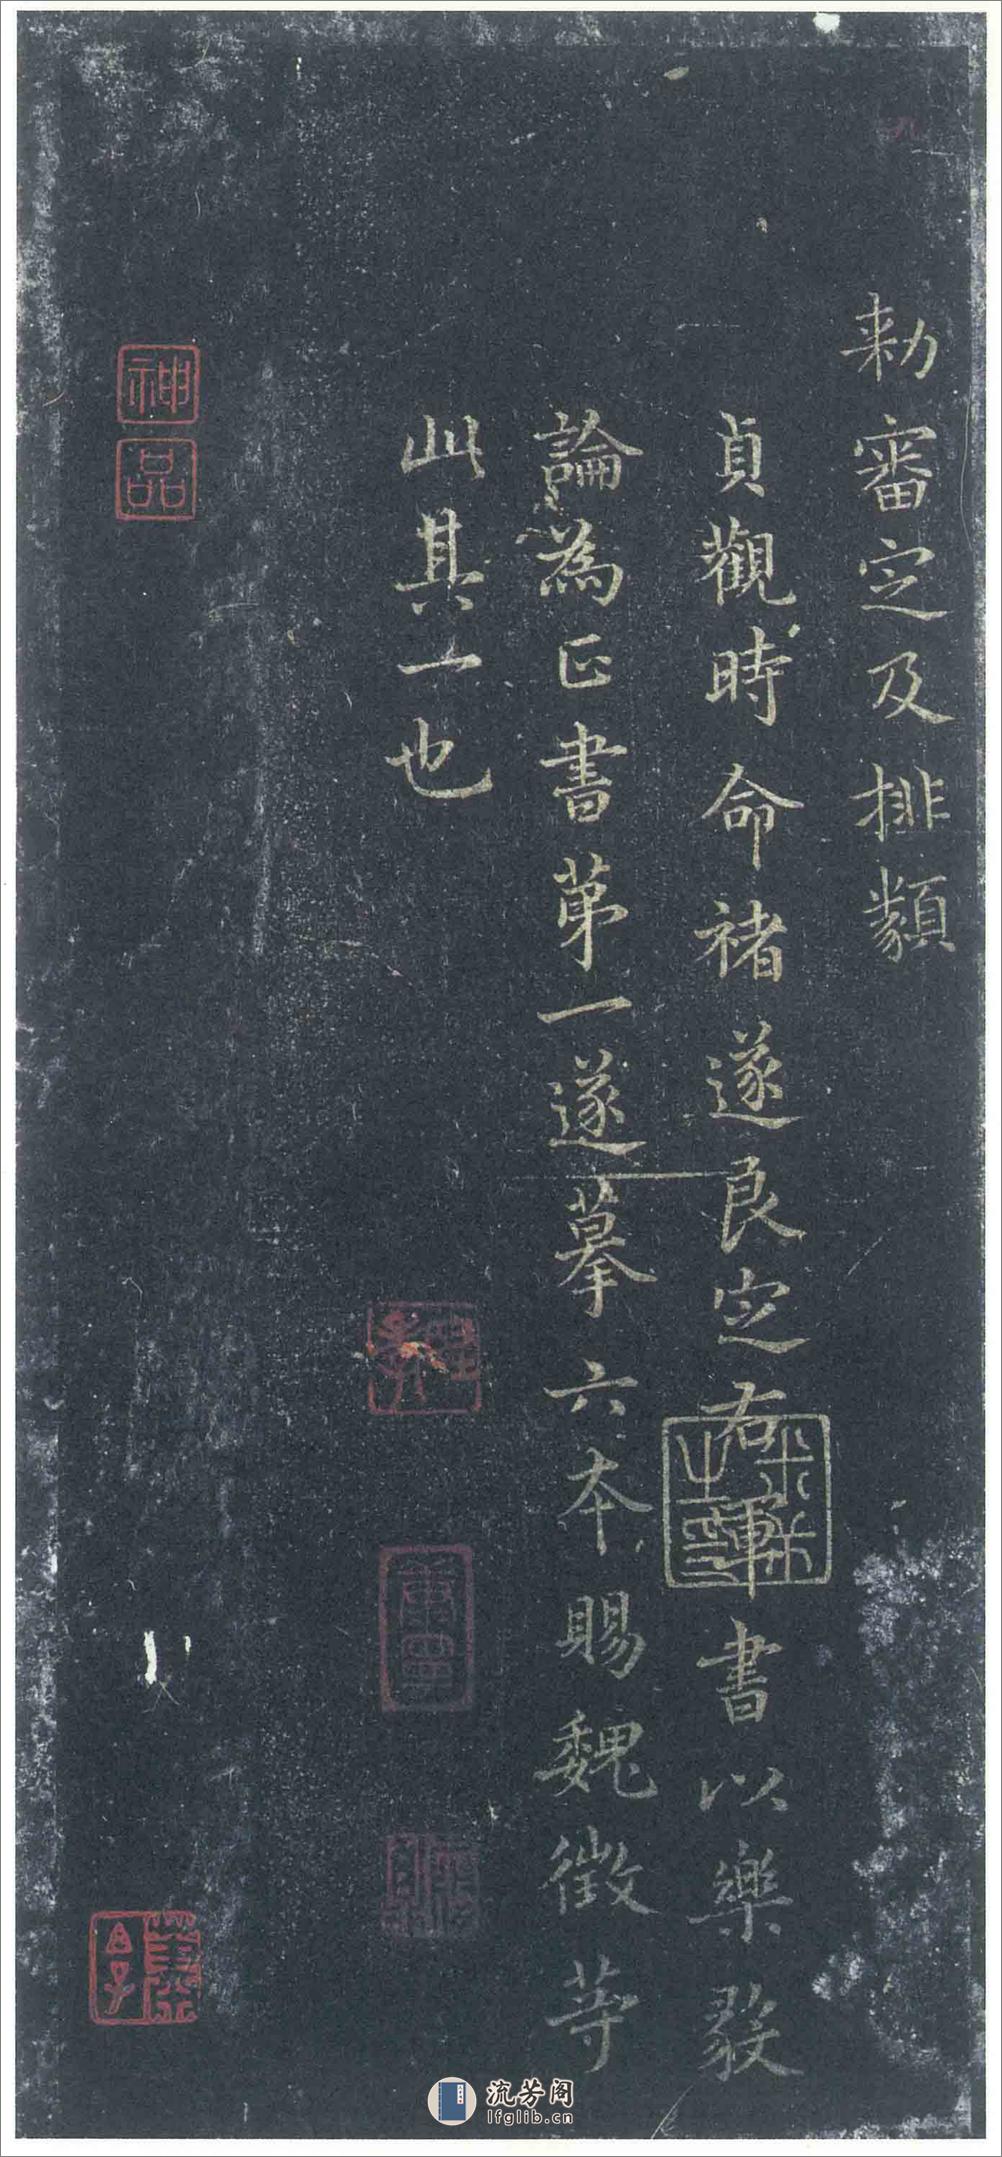 勑審定及排類
貞觀時命褚遂良定右軍書以樂毅
論為正書苐一遂摹六本賜魏徵等
此其一也
神品
流芳阁
lfglib.cn